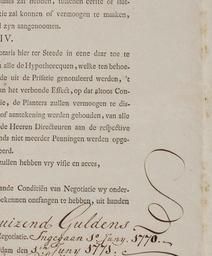 zal kennen of vermoogen te maaken,
zyn aangenoomen.
IV.
otaris hier ter Steede in eene daar toe te
alle de Hypothecquen, welke ten behoe-
de uit de Prisetie genotuleerd werden, 't
an het verbonde Effect, op dat altoos Con-
tie, de Planters zullen vermoogen te dis-
of aantekening werden gehouden, van alle
de Heeren Directeuren aan de respective
ds niet meerder Penningen werden opge-
eerd.
zullen hebben vry visie en acces,
ande Conditiën van Negotiatie wy onder-
bekennen ontfangen te hebben, uit handen
uizend Guldens
Negotiatie. Ingegaan 1o. Juny. 1770.
dam den 1o. Juny 1771.